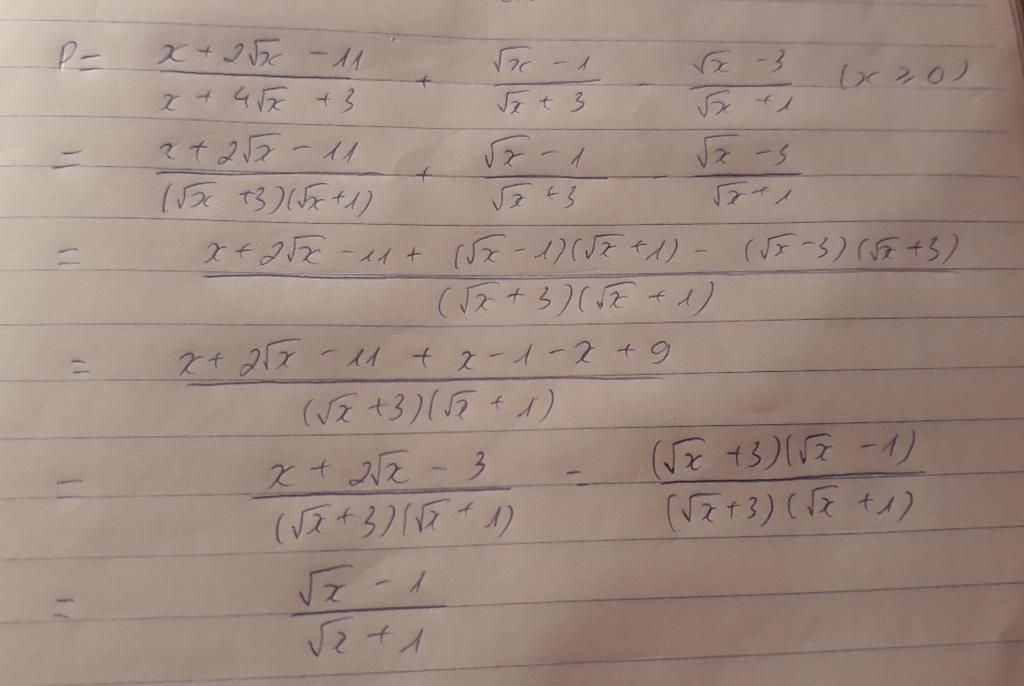 P = (x + 2√x - 11)/(x + 4√x + 3) + (√x - 1)/(√x + 3) - (√x - 3)/(√x + 1) (x ≥ 0)
= (x + 2√x - 11)/((√x + 3)(√x + 1)) + (√x - 1)/(√x + 3) - (√x - 3)/(√x + 1)
= (x + 2√x - 11 + (√x - 1)(√x + 1) - (√x - 3)(√x + 3))/((√x + 3)(√x + 1))
= (x + 2√x - 11 + x - 1 - x + 9)/((√x + 3)(√x + 1))
= (x + 2√x - 3)/((√x + 3)(√x + 1)) = ((√x + 3)(√x - 1))/((√x + 3)(√x + 1))
= (√x - 1)/(√x + 1)